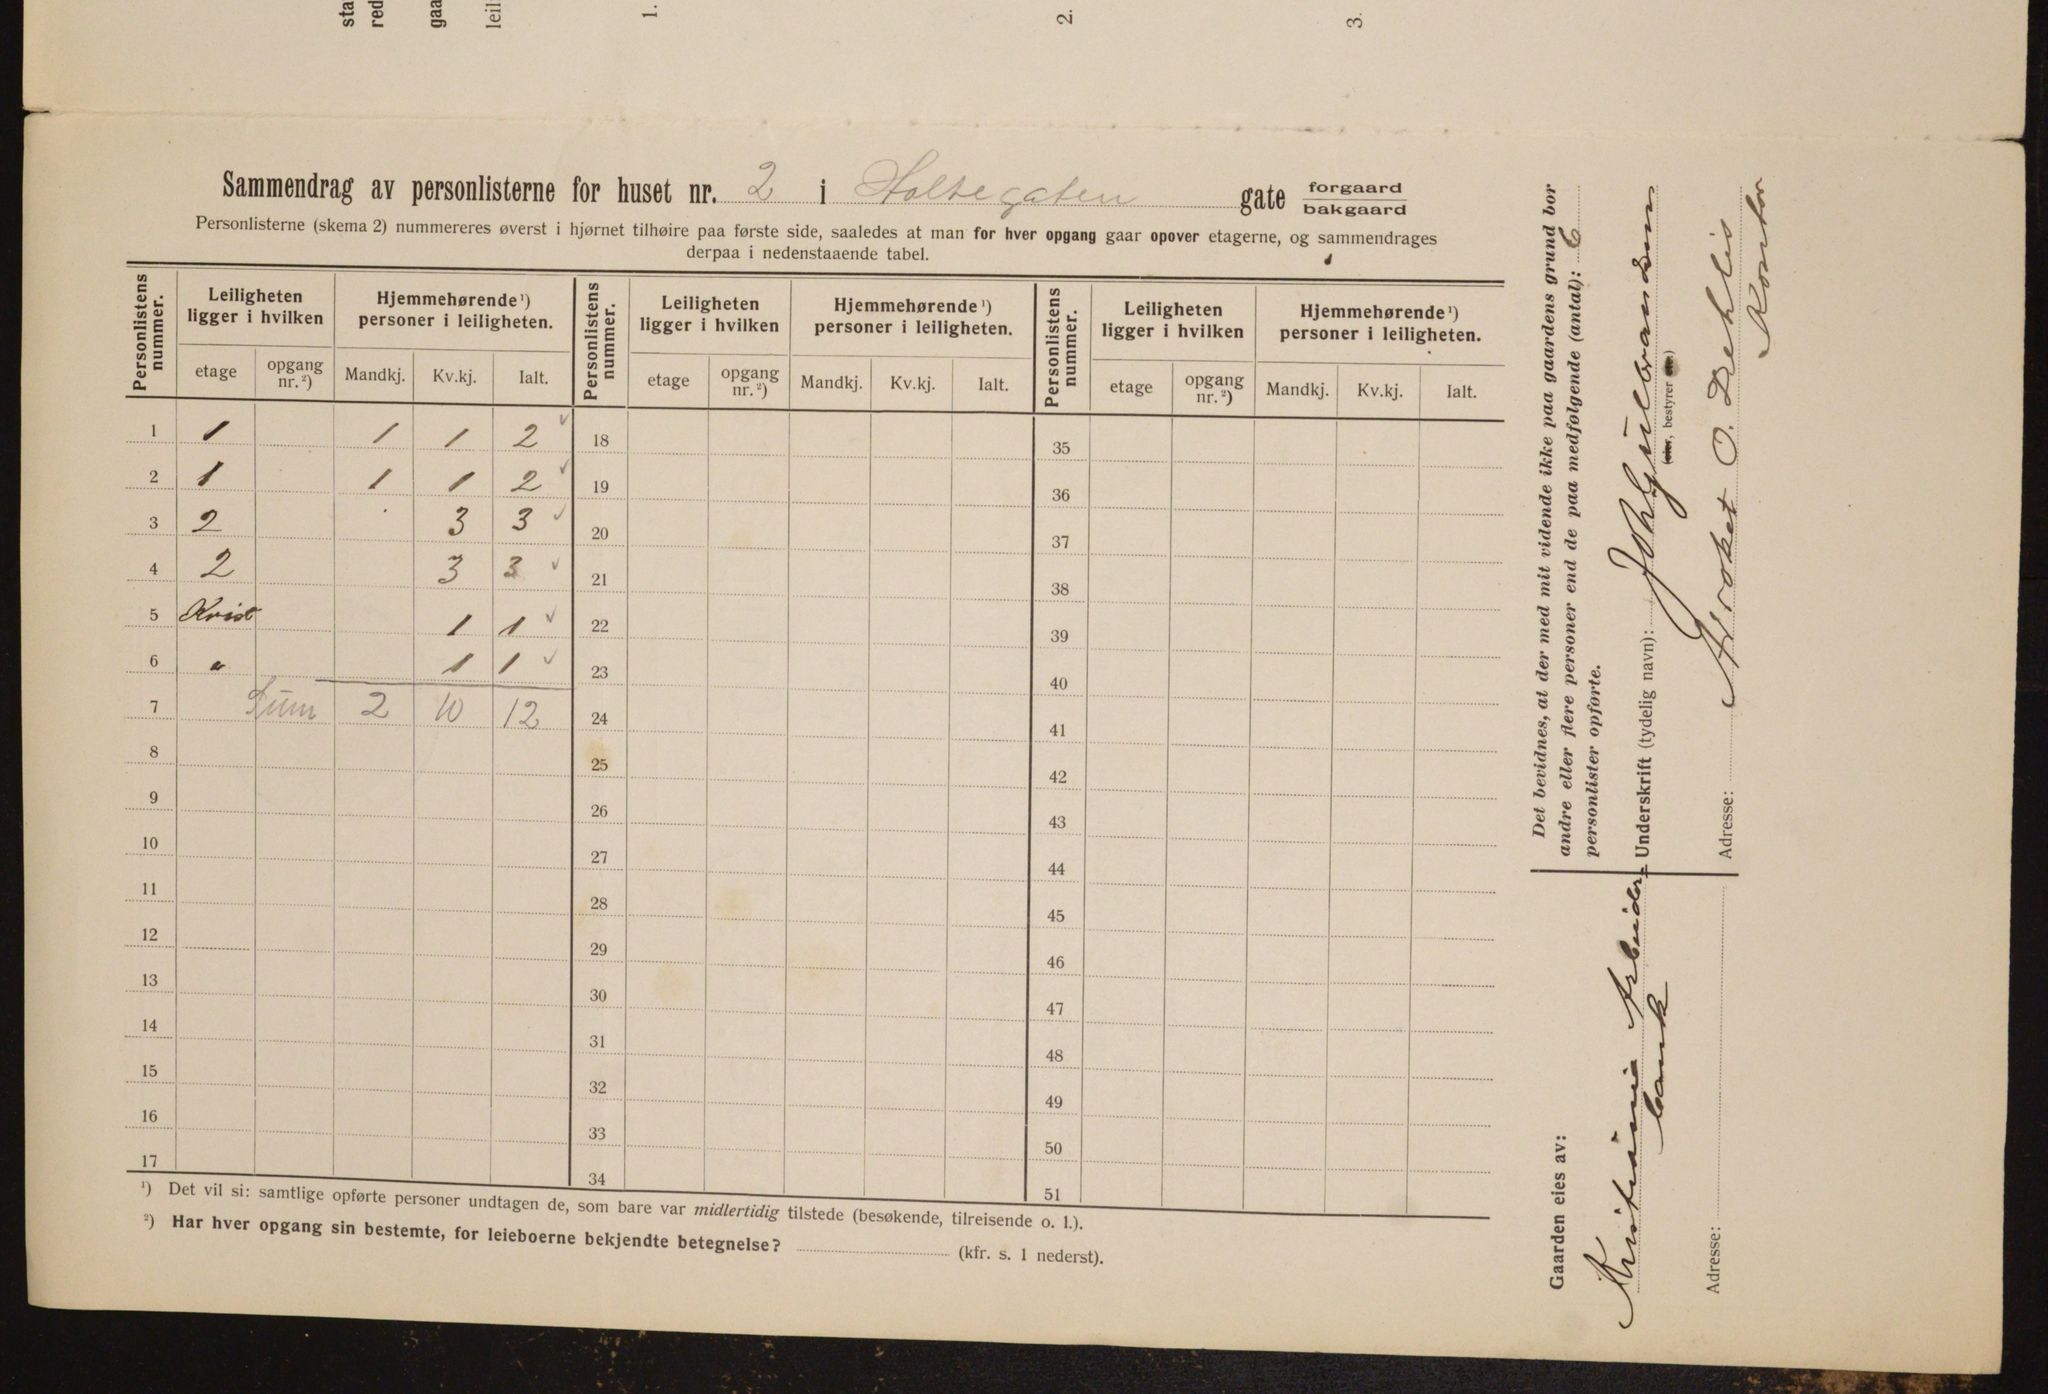 sta
red
gaa
leil
1.
2.
3.
Sammendrag av personlisterne for huset nr. 2 i Holtegaten gate forgaard
bakgaard
Personlisterne (skema 2) nummereres øverst i hjørnet tilhøire paa første side, saaledes at man for hver opgang gaar opover etagerne, og sammendrages
derpaa i nedenstaaende tabel.
Personlistens nummer. Leiligheten ligger i hvilken Hjemmehørende ¹) personer i leiligheten. Personlistens nummer. Leiligheten ligger i hvilken Hjemmehørende ¹) personer i leiligheten. Personlistens nummer. Leiligheten ligger i hvilken Hjemmehørende ¹) personer i leiligheten.
etage opgang nr. ²) Mandkj. Kv.kj. Ialt. etage opgang nr. ²) Mandkj. Kv.kj. Ialt. etage opgang nr. ²) Mandkj. Kv.kj. Ialt.
1 1 1 1 2 18 35
2 1 1 1 2 19 36
3 2 3 3 20 37
4 2 3 3 21 38
5 Kvist 1 1 22 39
6 " 1 1 23 40
7 Sum 2 10 12 24 41
8 25 42
9 26 43
10 27 44
11 28 45
12 29 46
13 30 47
14 31 48
15 32 49
16 33 50
17 34 51
¹) Det vil si: samtlige opførte personer undtagen de, som bare var midlertidig tilstede (besøkende, tilreisende o. l.).
²) Har hver opgang sin bestemte, for leieboerne bekjendte betegnelse? (kfr. s. 1 nederst).
Det bevidnes, at der med mit vidende ikke paa gaardens grund bor
andre eller flere personer end de paa medfølgende (antal): 6
personlister opførte.
Underskrift (tydelig navn): Joh Gulbrandsen
(eier, bestyrer etc.)
Adresse: O. Dehlis
Kontor
Gaarden eies av:
Kristiania Arbeider
bank
Adresse: